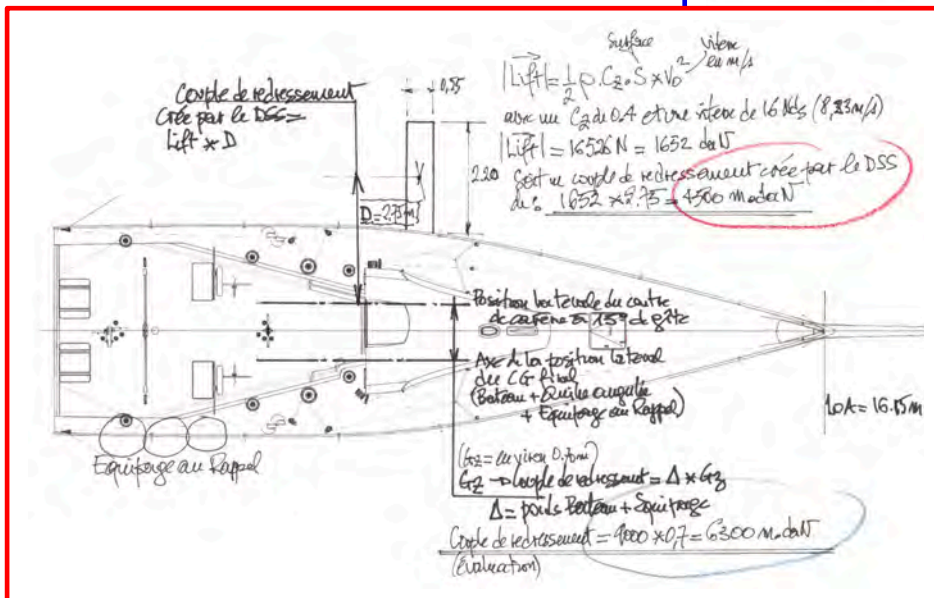 Couple de redressement
Crée par le DSS =
Lift * D
0,85
220
D = 2.75m
Surface
vitesse
en m/s
|Lift| = ½ ρ. Cz. S * V₀²
avec un Cz de 0.4 et une vitesse de 16 Nds (8,23m/s)
|Lift| = 16526 N = 1652 daN
Soit un couple de redressement créé par le DSS
de : 1652 * 2.75 = 4500 m.daN
Position latérale du centre
de carène à 15° de gîte
Axe de la position latéral
du CG final
(Bateau + Quille angulée
+ Equipage au Rappel)
LOA = 16.85m
Equipage au Rappel
(Gz = environ 0.70m)
Gz → Couple de redressement = Δ * Gz
Δ = poids Bateau + Equipage
Couple de redressement = 9000 * 0,7 = 6300 m.daN
(évaluation)